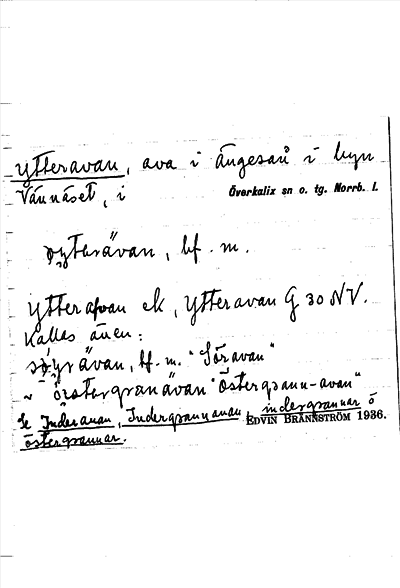 Ytteravan, ava i Ängesån i byn
Vännäset, i Överkalix sn o. tg. Norrb. l.
bf. m.
Ytterafvan ek, Ytteravan G 30 NV.
Kallas även:
bf. m. "Söravan"
~ östergranävan "Östergrann-avan"
Se Inderavan, Indergrannavan, indergrannar o
östergrannar. EDVIN BRÄNNSTRÖM 1936.